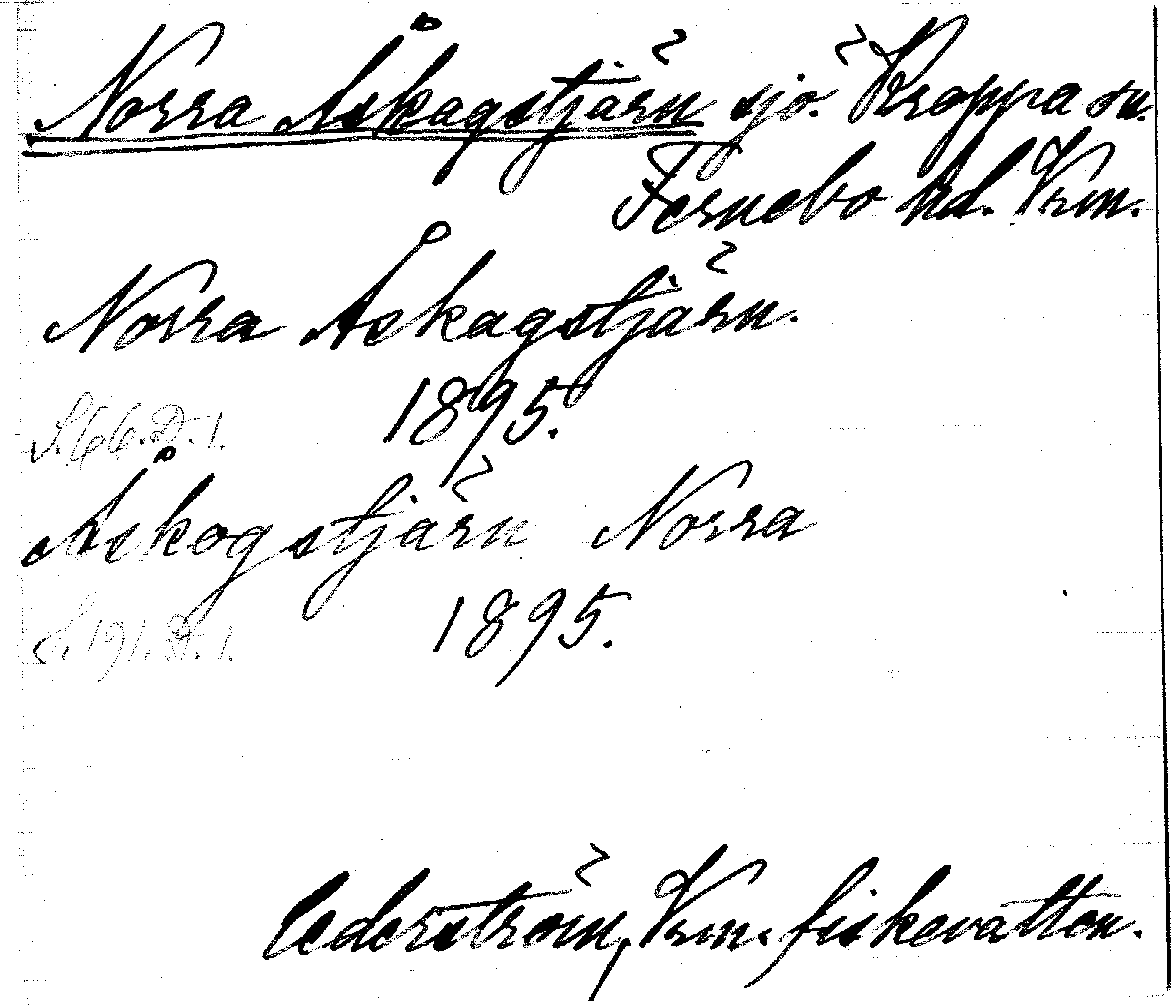 Norra Åskagstjärn sjö. Kroppa sn.
Fernebo hd. Vrm.
Norra Åskagstjärn.
1895.
S. 66. D. 1.
Åskogstjärn Norra
1895.
S. 191. D. 1.
Cederström, Vrm. fiskevatten.